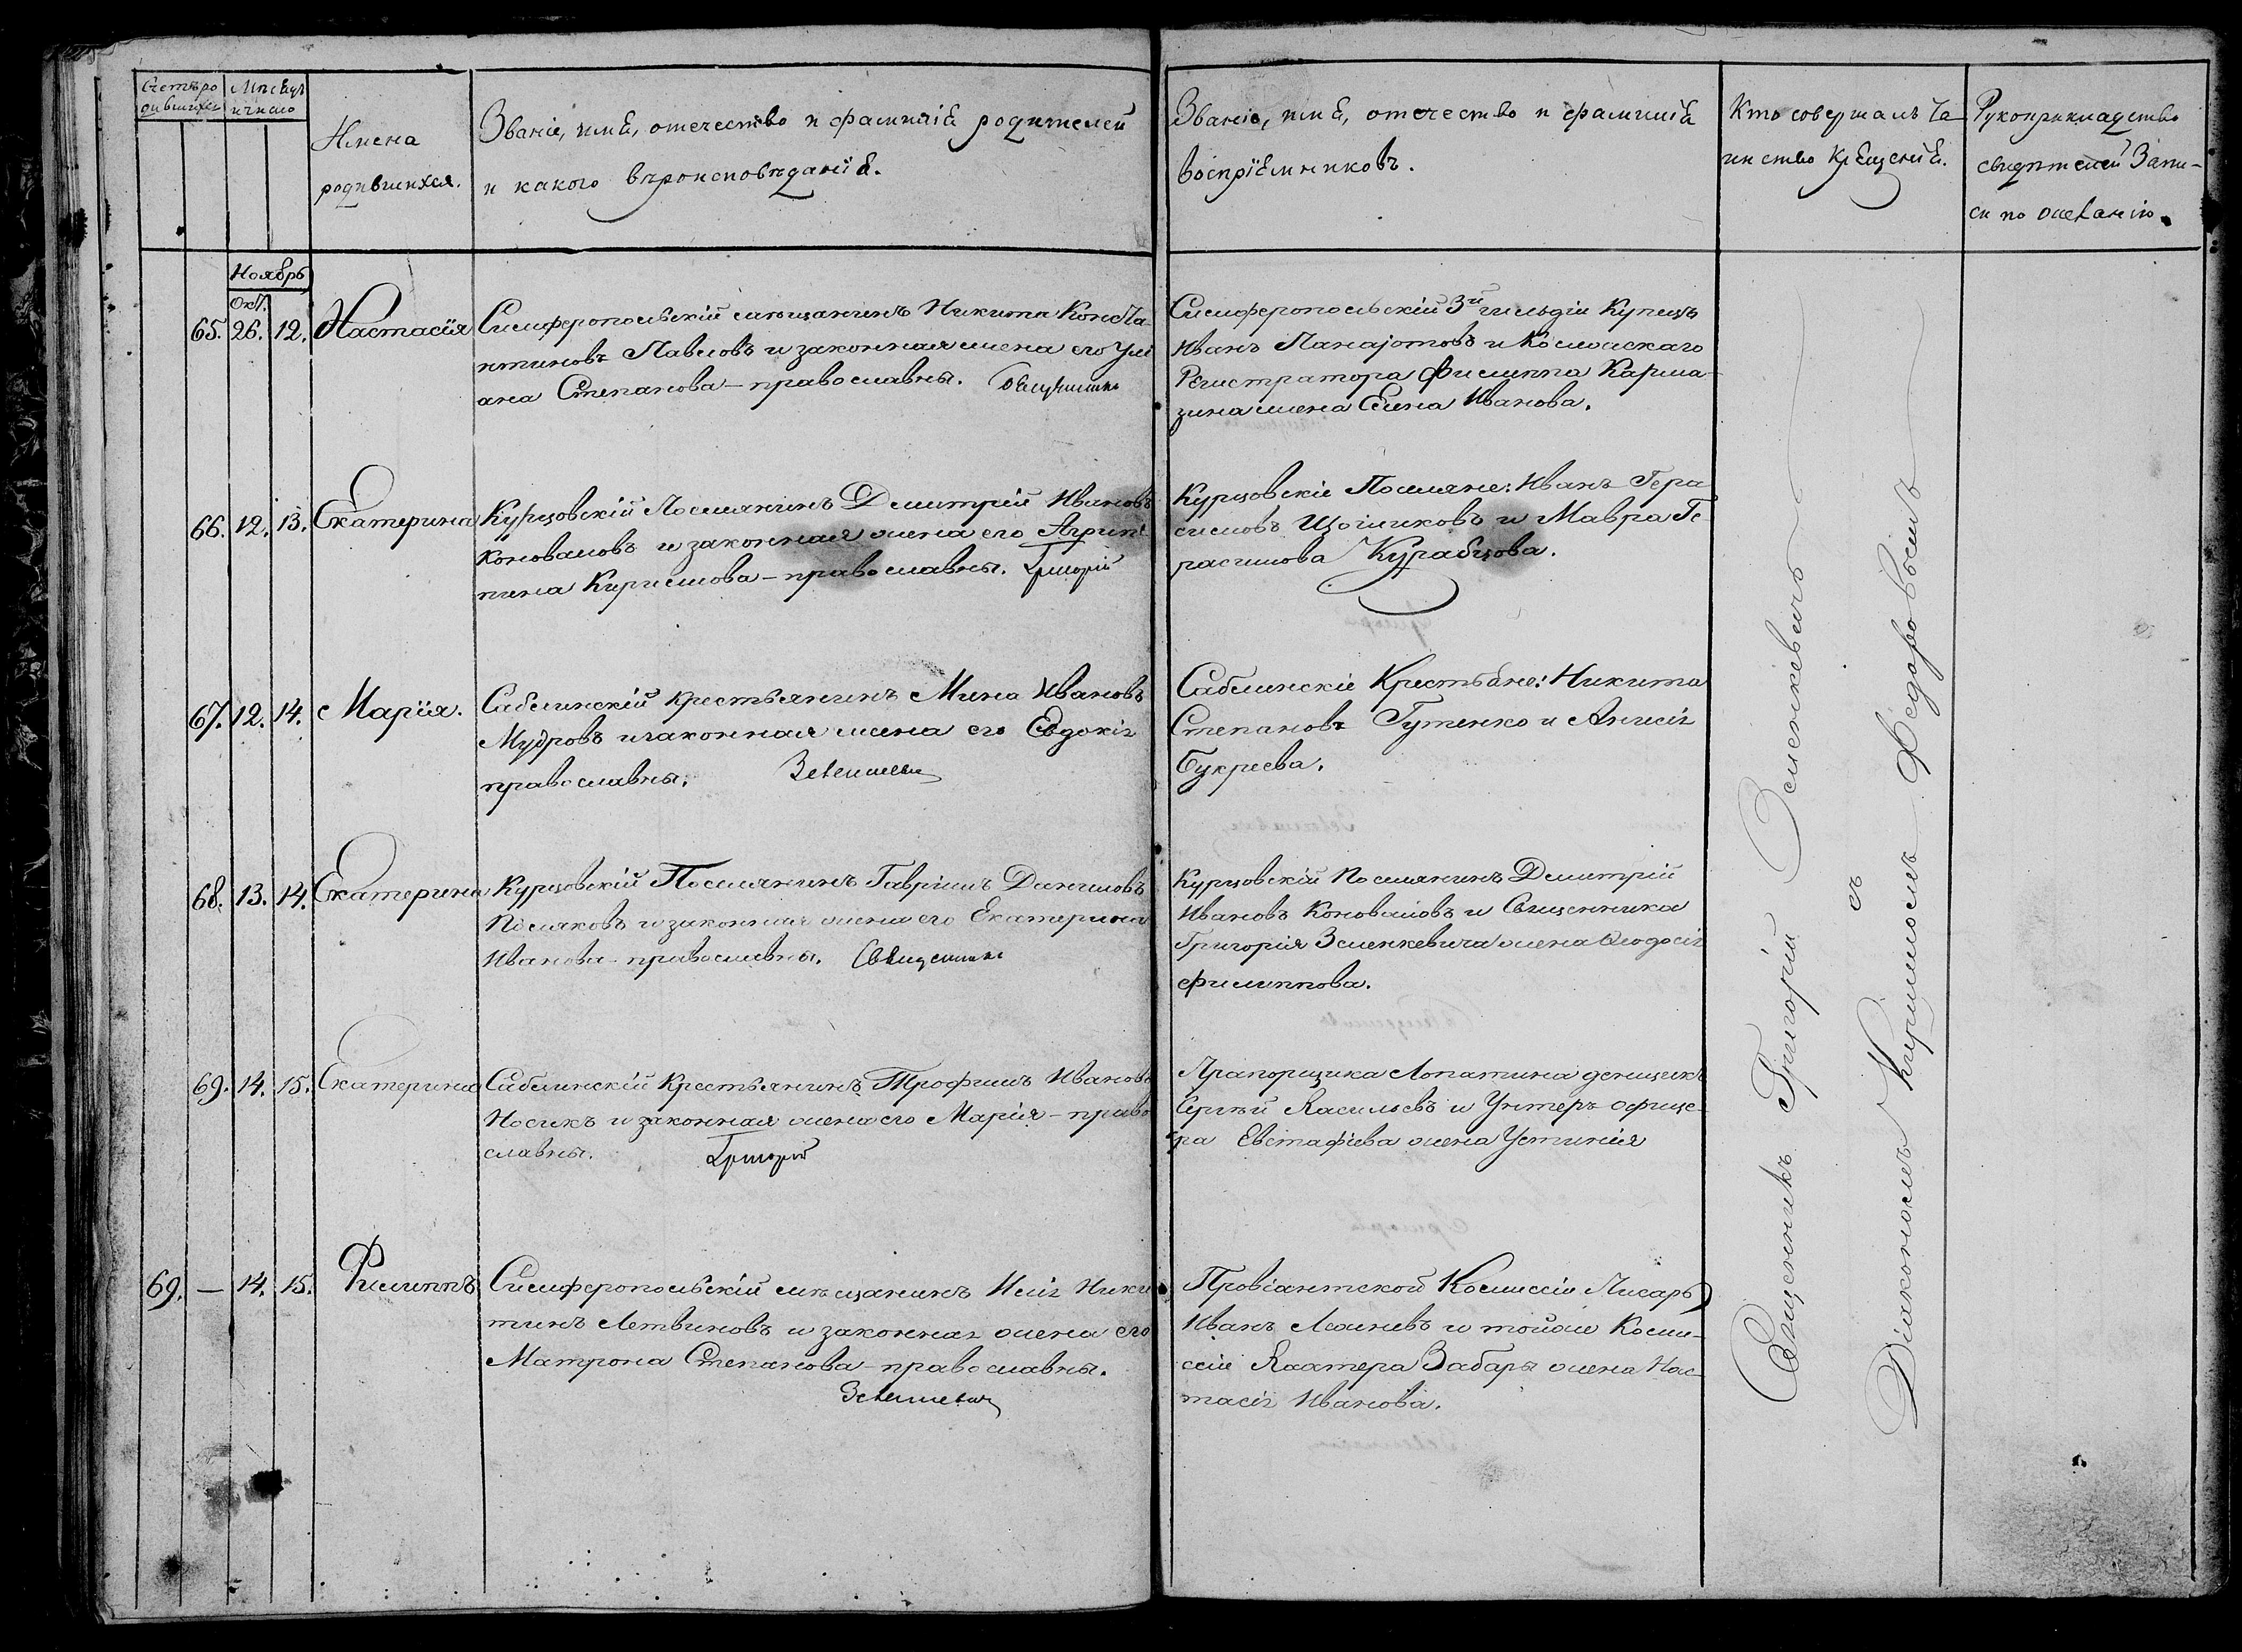 Счетъ ро
дившихся
Мѣсяцъ
и число
Имена
родившихся.
Званіе, имя, отечество и фамилія родителей
и какого вѣроисповѣданія.
Званіе, имя, отечество и фамилія
воспріемниковъ.
Кто совершалъ Та
инство крещенія.
Рукоприкладство
свидѣтелей запи-
си по желанію.
Ноябрь
Окт.
65. 26. 12. Настасія
Симферопольскій мѣщанинъ Никита Конста-
нтиновъ Павловъ и законная жена его Ули
ана Степанова - православны. Священникъ
Симферопольскій 3й гильдіи Купецъ
Иванъ Панаіотовъ и Коллежскаго
Регистратора Филиппа Карма-
зина жена Елена Иванова.
66. 12. 13. Екатерина
Курцовскій Поселянинъ Димитрій Ивановъ
Коноваловъ и законная жена его Агрип
пина Кирилова - православны. Григорій
Курцовскіе Поселяне: Иванъ Гера
симовъ Щегликовъ и Мавра Ге-
расимова Курабцова.
67. 12. 14. Марія.
Саблинскій крестьянинъ Мина Ивановъ
Мудровъ и законная жена его Евдокія
православны. Зеленкевичъ
Саблинскіе Крестьяне: Никита
Степановъ Гутенко и Анисія
Букреева.
68. 13. 14. Екатерина
Курцовскій Поселянинъ Гавріилъ Даниловъ
Поляковъ и законная жена его Екатерина
Иванова - православны. Священникъ
Курцовскій Поселянинъ Димитрій
Ивановъ Коноваловъ и Священника
Григорія Зеленкевича жена Ѳеодосія
Филиппова.
69. 14. 15. Екатерина
Саблинскій Крестьянинъ Трофимъ Ивановъ
Носикъ и законная жена его Марія - право
славны. Григорій
Прапорщика Лопатина денщикъ
Сергѣй Васильевъ и Унтеръ-офице-
ра Евстафіева жена Устинія
69. — 14. 15. Филиппъ
Симферопольскій мѣщанинъ Илія Ники
тинъ Летвиновъ и законная жена его
Матрона Степанова - православны.
Зеленкевичъ
Провіантской Комиссіи Писарь
Иванъ и тойже Коми-
ссіи Вахтера Забары жена Нас
тасія Иванова.
Священникъ Григорій Зеленкевичъ
съ
Діакономъ Кирилломъ Ѳедоровымъ